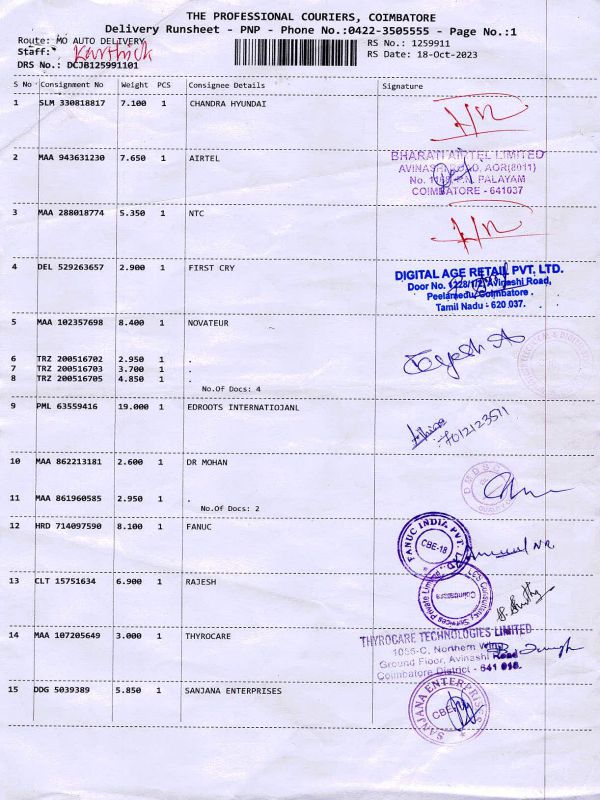 THE PROFESSIONAL COURIERS, COIMBATORE
Delivery Runsheet - PNP - Phone No.:0422-3505555 - Page No.:1
Route: MO AUTO DELIVERY
RS No.: 1259911
Staff: Karthick
RS Date: 18-Oct-2023
DRS No.: DCJB125991101
S No Consignment No Weight PCS Consignee Details Signature
1 SLM 330818817 7.100 1 CHANDRA HYUNDAI
2 MAA 943631230 7.650 1 AIRTEL
BHARATI AIRTEL LIMITED
AVINASHI ROAD, AOR(8011)
No. P.N. PALAYAM
COIMBATORE - 641037
3 MAA 288018774 5.350 1 NTC
4 DEL 529263657 2.900 1 FIRST CRY
DIGITAL AGE RETAIL PVT. LTD.
Door No. 1228/1/2, Avinashi Road,
Peelamedu, Coimbatore .
Tamil Nadu - 620 037.
5 MAA 102357698 8.400 1 NOVATEUR
6 TRZ 200516702 2.950 1 .
7 TRZ 200516703 3.700 1 .
8 TRZ 200516705 4.850 1 .
No.Of Docs: 4
9 PML 63559416 19.000 1 EDROOTS INTERNATIOJANL
10 MAA 862213181 2.600 1 DR MOHAN
11 MAA 861960585 2.950 1 .
No.Of Docs: 2
12 HRD 714097590 8.100 1 FANUC
FANUC INDIA PVT.
CBE-18
13 CLT 15751634 6.900 1 RAJESH
Services Private Limited
Coimbatore
14 MAA 107205649 3.000 1 THYROCARE
THYROCARE TECHNOLOGIES LIMITED
1055-C, Northern Wing
Ground Floor, Avinashi Road
Coimbatore District - 641 018.
15 DDG 5039389 5.850 1 SANJANA ENTERPRISES
SANJANA ENTERPRISES
CBE